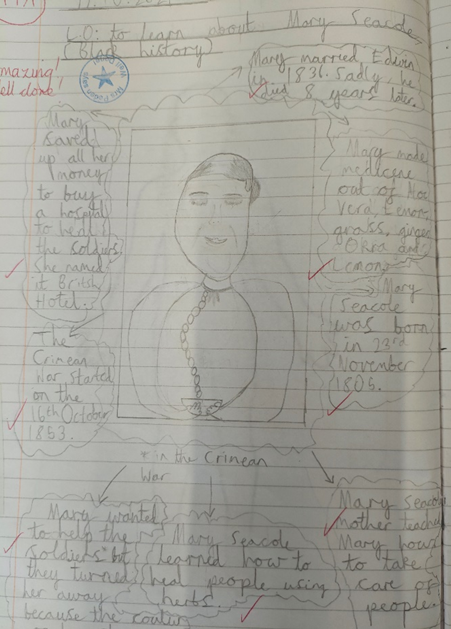 L.O: to learn about... Mary Seacole
(Black history)
Amazing!
Well done!
Mary married Edwin
in 1836. Sadly, he
died 8 years later.
Mary
saved
up all her
money
to buy
a hospital
to heal
the soldiers,
She named
it British
Hotel.
Mary made
medicine
out of Aloe
vera, Lemon
grass, ginger
Okra and
Lemons
Mary
Seacole
was born
in 23rd
November
1805.
The
Crimean
War started
on the
16th October
1853.
* in the Crimean
War
Mary wanted
to help the
soldiers* but
they turned
her away
because the
Mary Seacole
learned how to
heal people using
herbs.
Mary Seacole
mother teached
Mary how
to take
care of
people.